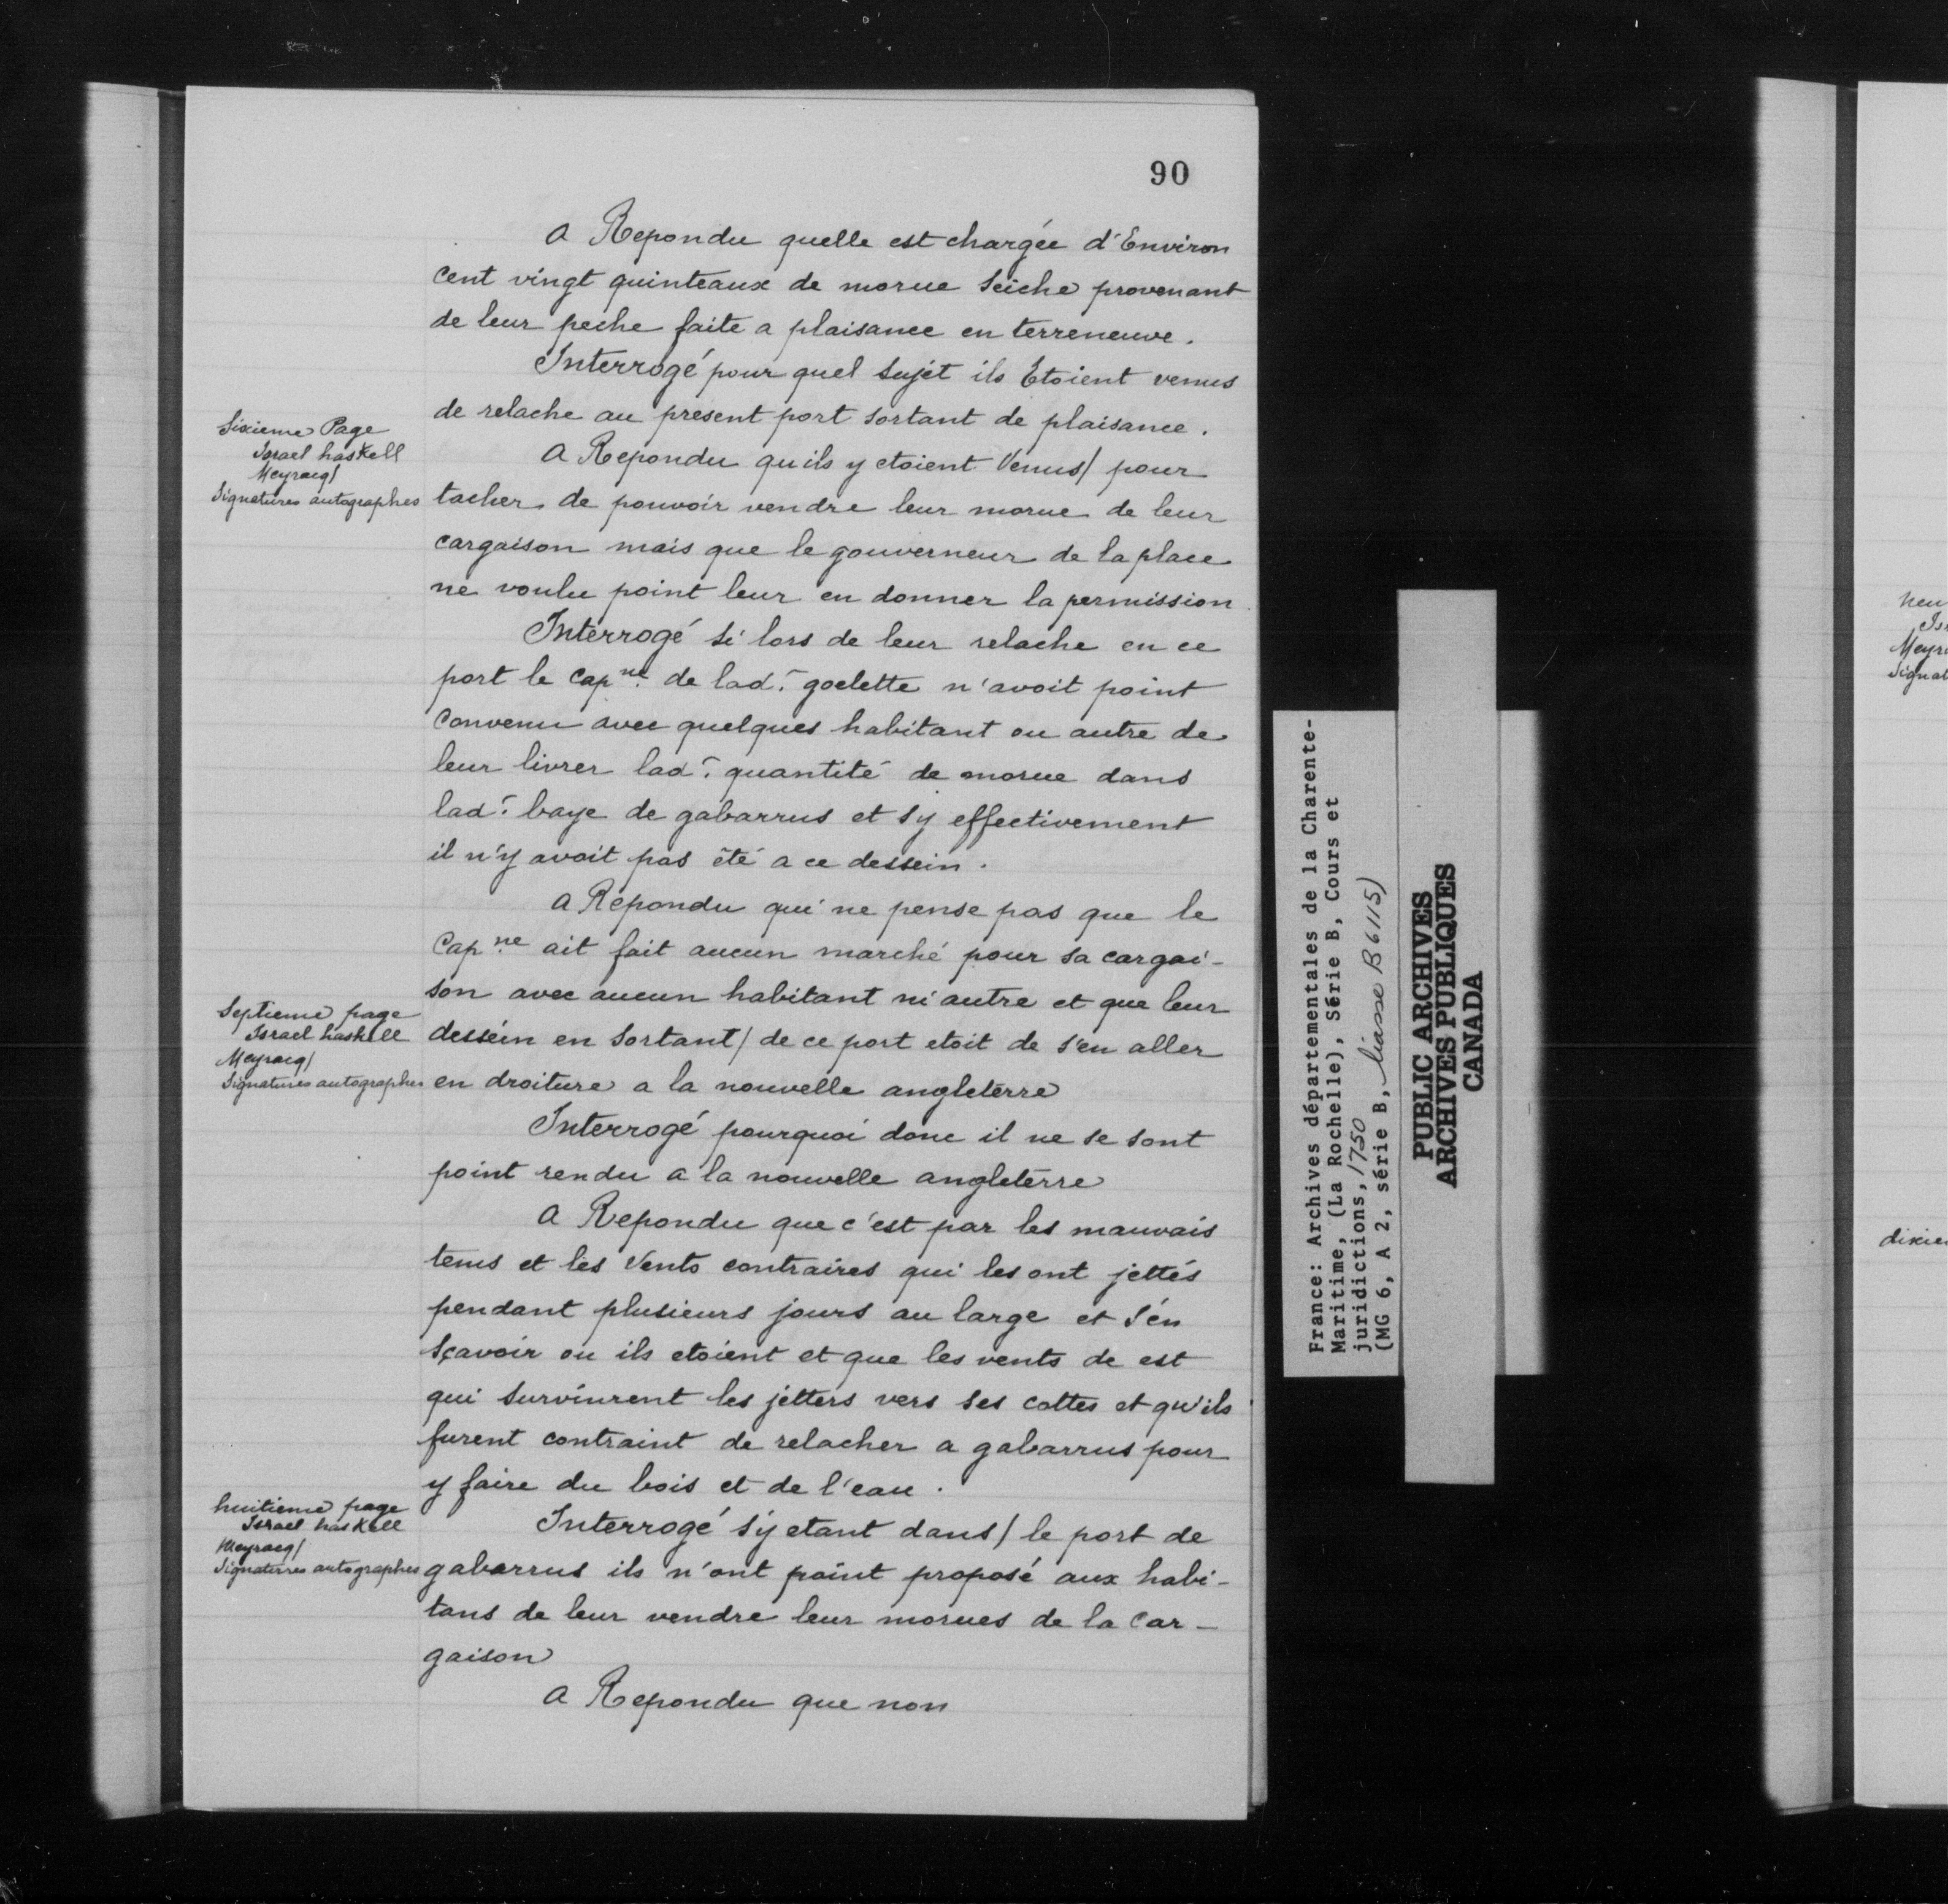 90
a Repondu quelle est chargée d'Environ
cent vingt quinteaux de morue seiche provenant
de leur peche faite a plaisance en terreneuve.
Interrogé pour quel sujet ils Etoient venus
de relache au present port sortant de plaisance.
Sixieme Page
Israel haskell
Meyracq/
Signatures autographes
A Repondu quils y etoient Venus/ pour
tacher de pouvoir vendre leur morue de leur
cargaison mais que le gouverneur de la place
ne voulu point leur en donner la permission.
Interrogé si lors de leur relache en ce
port le Capne. de lad. goelette n'avoit point
convenu avec quelques habitant ou autre de
leur livrer lad. quantité de morue dans
lad. baye de gabarrus et sy effectivement
il n'y avoit pas été a ce dessein.
A Répondu qui ne pense pas que le
Capne. ait fait aucun marché pour sa cargai-
son avec aucun habitant ni autre et que leur
Septieme page
Israel haskell
Meyracq/
Signatures autographes
dessein en sortant/ de ce port etoit de s'en aller
en droiture a la nouvelle angleterre
Interrogé pourquoi donc il ne se sont
point rendu a la nouvelle angleterre
A Repondu que c'est par les mauvais
tems et les Vents contraires qui les ont jettés
pendant plusieurs jours au large et s'en
sçavoir ou ils etoient et que les vents de est
qui survinrent les jetters vers ses cottes et qu'ils
furent contraint de relacher a gabarrus pour
y faire du bois et de l'eau.
huitieme page
Israel haskell
Meyracq/
Signatures autographes
Interrogé s'y etant dans/ le port de
gabarrus ils n'ont point proposé aux habi-
tans de leur vendre leur morues de la Car-
gaison
A Repondu que non
France: Archives départementales de la Charente-
Maritime, (La Rochelle), Série B, Cours et
juridictions, 1750
(MG 6, A 2, série B, liasse B 6115)
PUBLIC ARCHIVES
ARCHIVES PUBLIQUES
CANADA